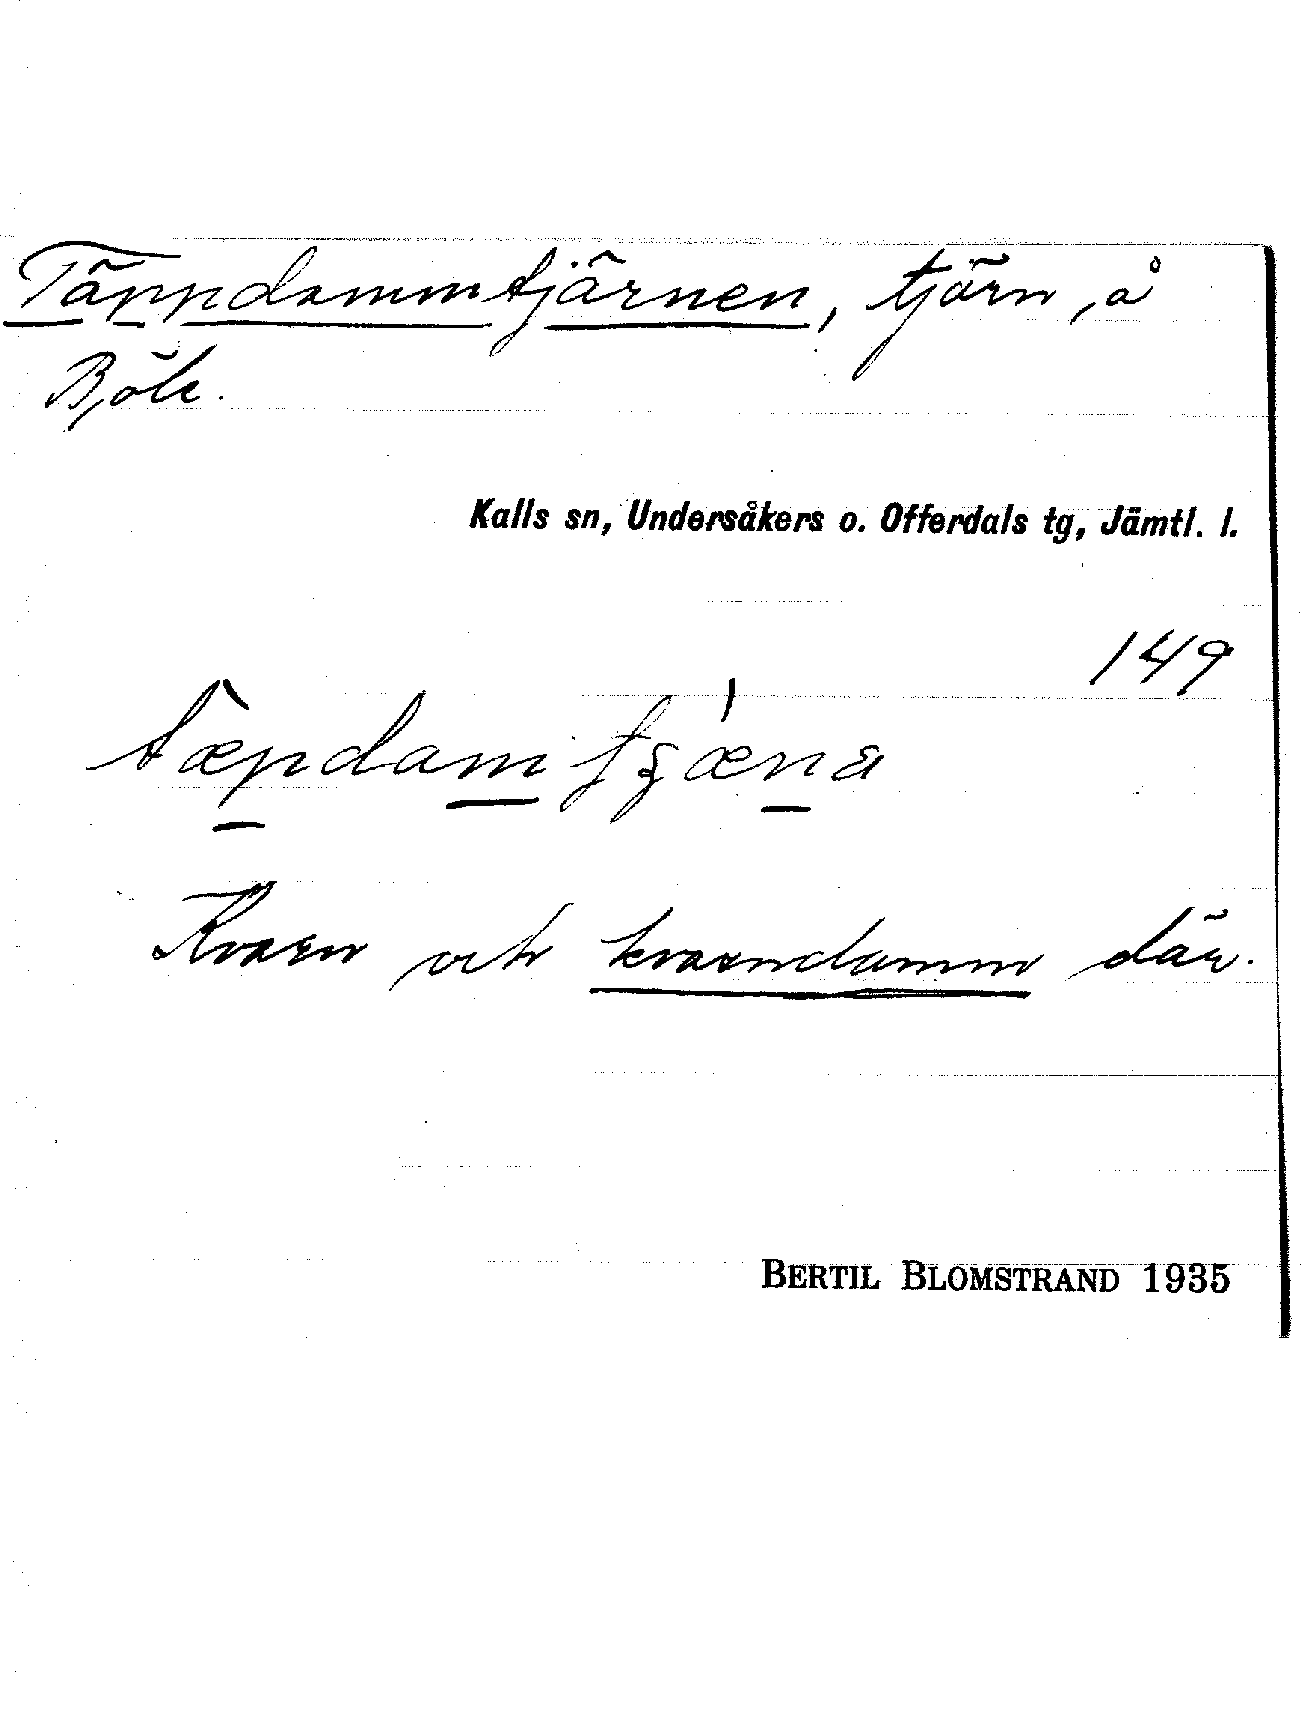 Täppdammtjärnen, tjärn, å
Böle.
Kalls sn, Undersåkers o. Offerdals tg, Jämtl. l.
149
Kvarn och kvarndamm där.
BERTIL BLOMSTRAND 1935